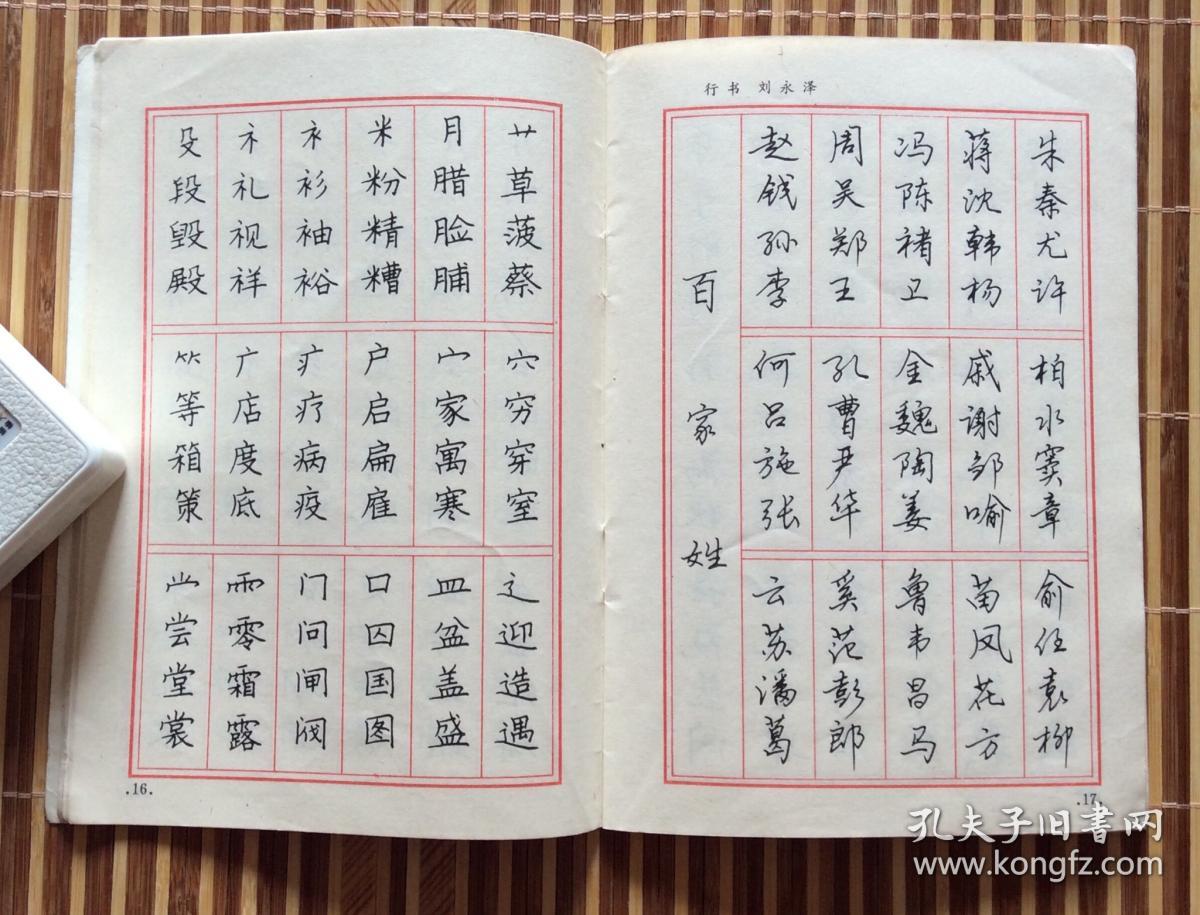 殳段毁殿
礻礼视祥
衤衫袖裕
米粉精糟
月腊脸脯
艹草菠蔡
⺮等箱策
广店度底
疒疗病疫
户启扁雇
宀家寓寒
穴穷穿窒
⺌尝堂裳
⻗零霜露
门问闸阀
口囚国图
皿盆盖盛
辶迎造遇
.16.
行书 刘永泽
百家姓
赵钱孙李
周吴郑王
冯陈褚卫
蒋沈韩杨
朱秦尤许
何吕施张
孔曹严华
金魏陶姜
戚谢邹喻
柏水窦章
云苏潘葛
奚范彭郎
鲁韦昌马
苗凤花方
俞任袁柳
.17.
孔夫子旧書网
www.kongfz.com